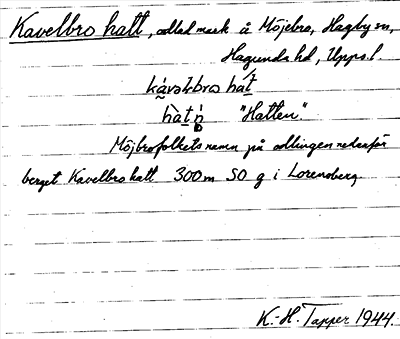 Kavelbro hatt, odlad mark å Möjebro, Hagby sn,
Hagunda hd, Upps. l.
kávəlbro hát
hàtn̥ "Hatten"
Möjbrofolkets namn på odlingen nedanför
berget Kavelbro hatt 300 m SO g i Lorensberg
K.-H. Tapper 1944.